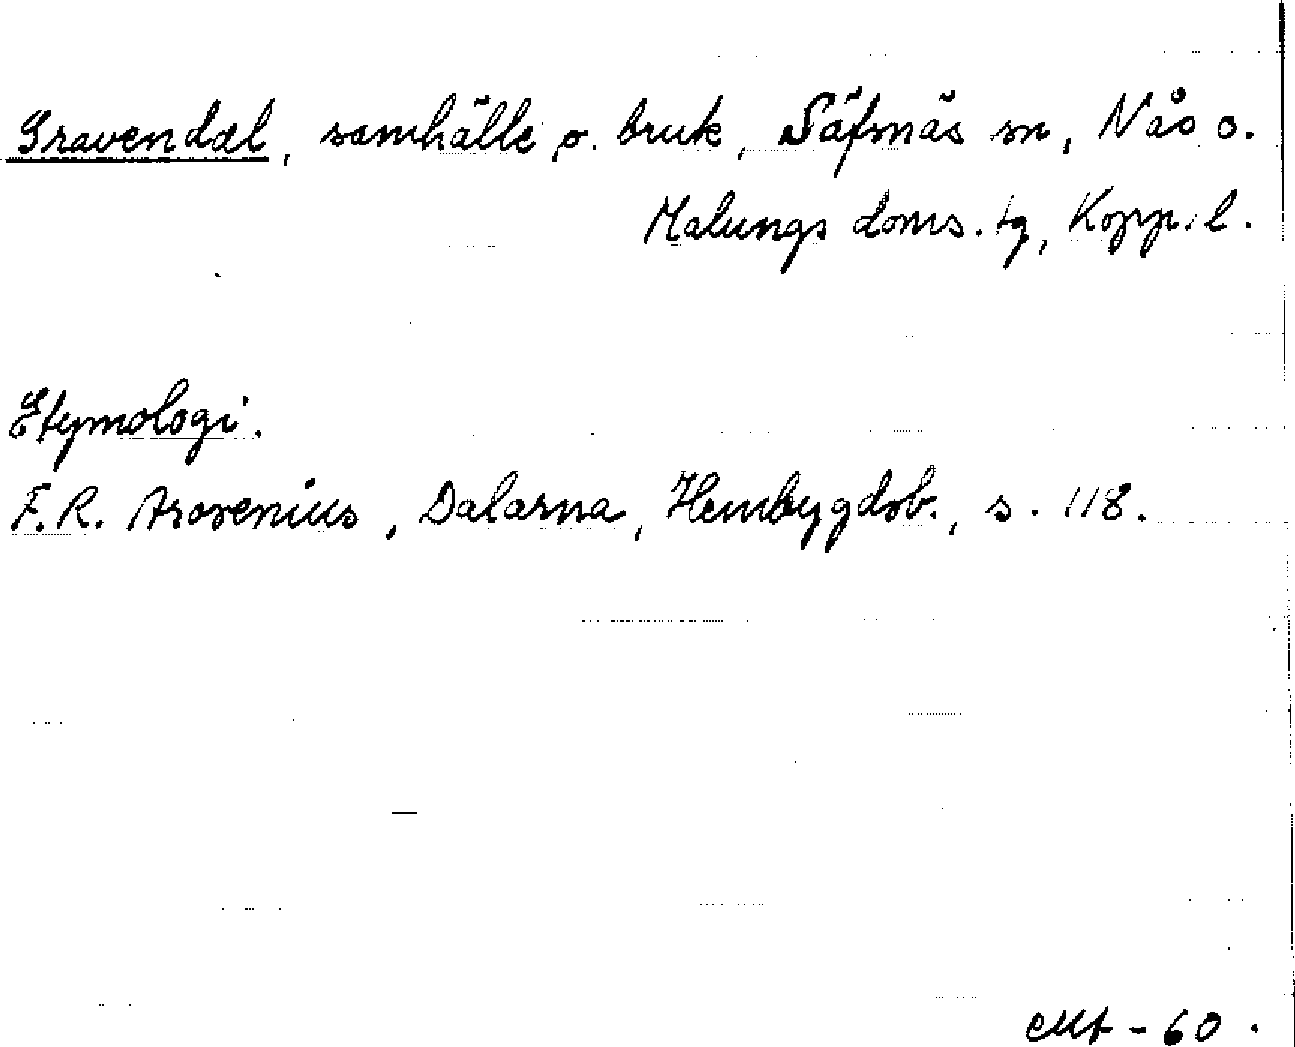 Gravendal, samhälle o. bruk, Säfsnäs sn, Nås o.
Malungs doms.tg, Kopp.l.
Etymologi.
F.R. Arosenius, Dalarna, Hembygdsb., s. 118.
-60.